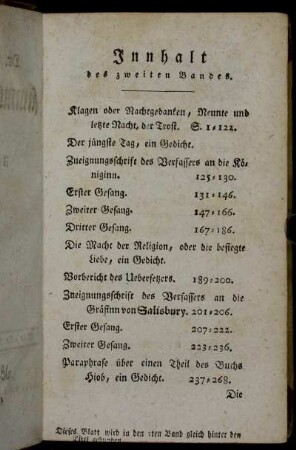 Innhalt
des zweiten Bandes.
Klagen oder Nachtgedanken, Neunte und
letzte Nacht, der Trost. S. 1-122.
Der jüngste Tag, ein Gedicht.
Zueignungsschrift des Verfassers an die Kö-
niginn. 125-130.
Erster Gesang. 131-146.
Zweiter Gesang. 147-166.
Dritter Gesang. 167-186.
Die Macht der Religion, oder die besiegte
Liebe, ein Gedicht.
Vorbericht des Uebersetzers. 189-200.
Zueignungsschrift des Verfassers an die
Gräfinn von Salisbury. 201-206.
Erster Gesang. 207-222.
Zweiter Gesang. 223-236.
Paraphrase über einen Theil des Buchs
Hiob, ein Gedicht. 237-268.
Die
Dieses Blatt wird in den 2ten Band gleich hinter den
Titel gebunden